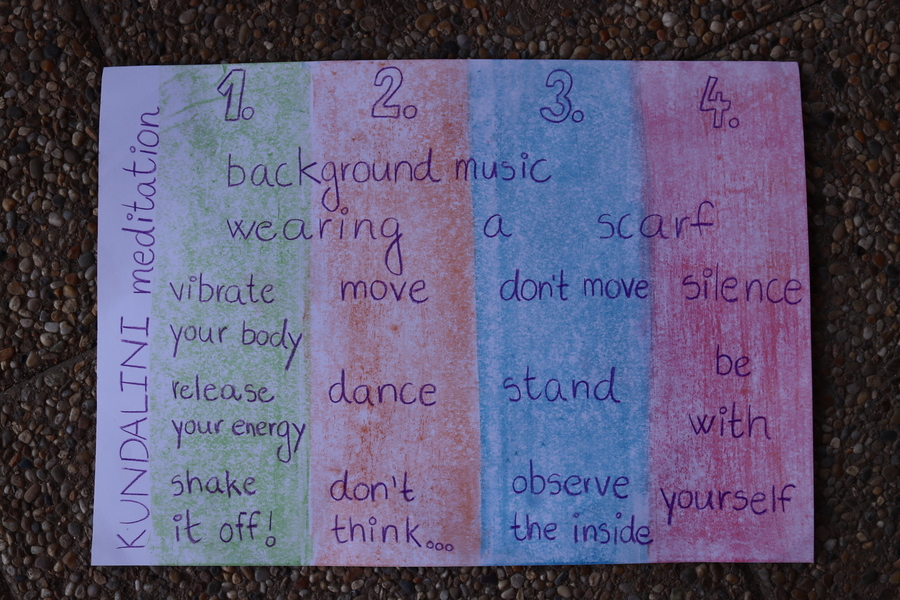 KUNDALINI meditation
1. 2. 3. 4.
background music
wearing a scarf
vibrate
your body
release
your energy
shake
it off!
move
dance
don't
think...
don't move
stand
observe
the inside
silence
be
with
yourself